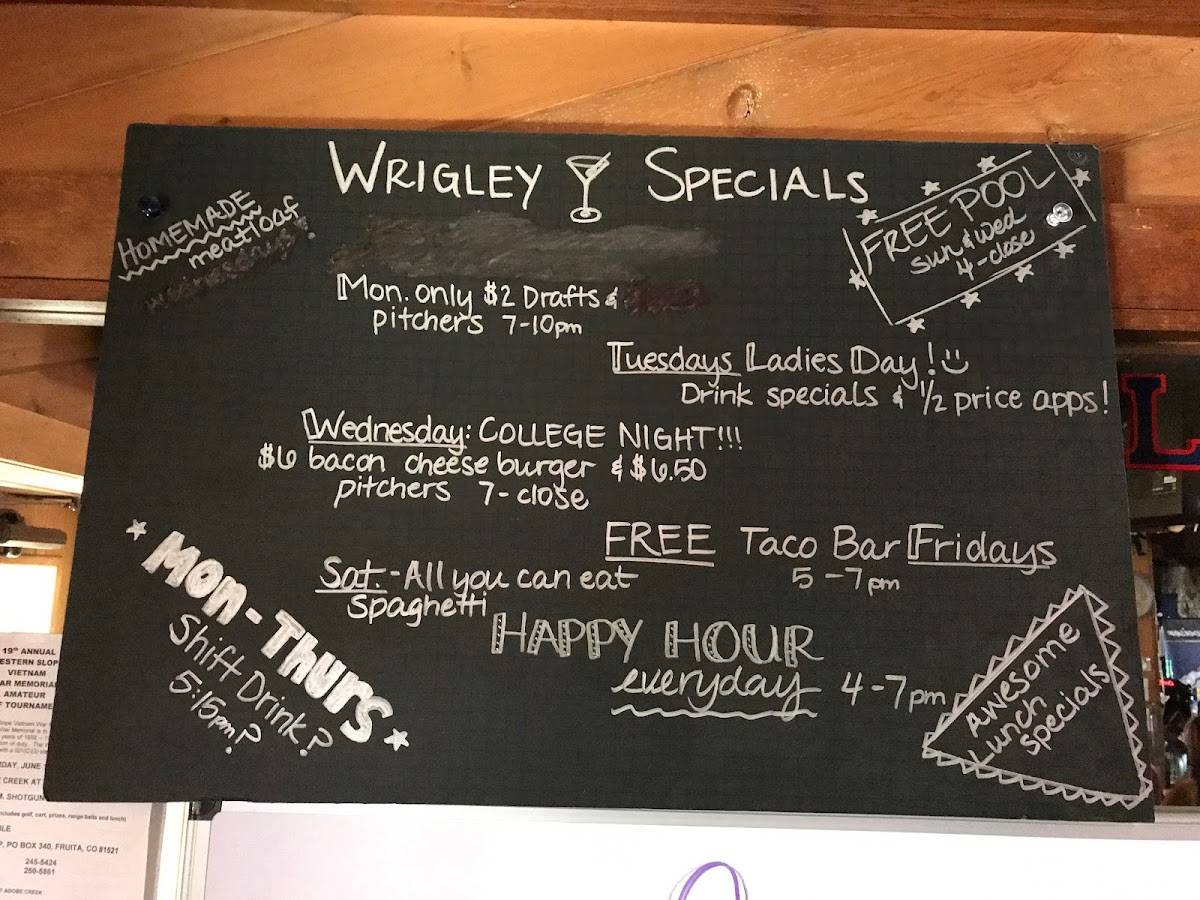 WRIGLEY SPECIALS
HOMEMADE
meatloaf
FREE POOL
sun & wed
4-close
Mon. only $2 Drafts &
pitchers 7-10pm
Tuesdays Ladies Day!
Drink specials & 1/2 price apps!
Wednesday: COLLEGE NIGHT!!!
$6 bacon cheese burger & $6.50
pitchers 7-close
FREE Taco Bar Fridays
5-7pm
Sat.-All you can eat
spaghetti
HAPPY HOUR
everyday 4-7pm
MON-THURS
Shift Drink?
5:15pm?
AWESOME
Lunch
specials
L
19th ANNUAL
ESTERN SLOP
VIETNAM
AR MEMORIA
AMATEUR
F TOURNAME
DAY, JUNE
CREEK AT
M. SHOTGUN
includes golf, cart, prizes, range balls and lunch)
BLE
P, PO BOX 340, FRUITA, CO 81521
245-5424
250-5861
F ADOBE CREEK